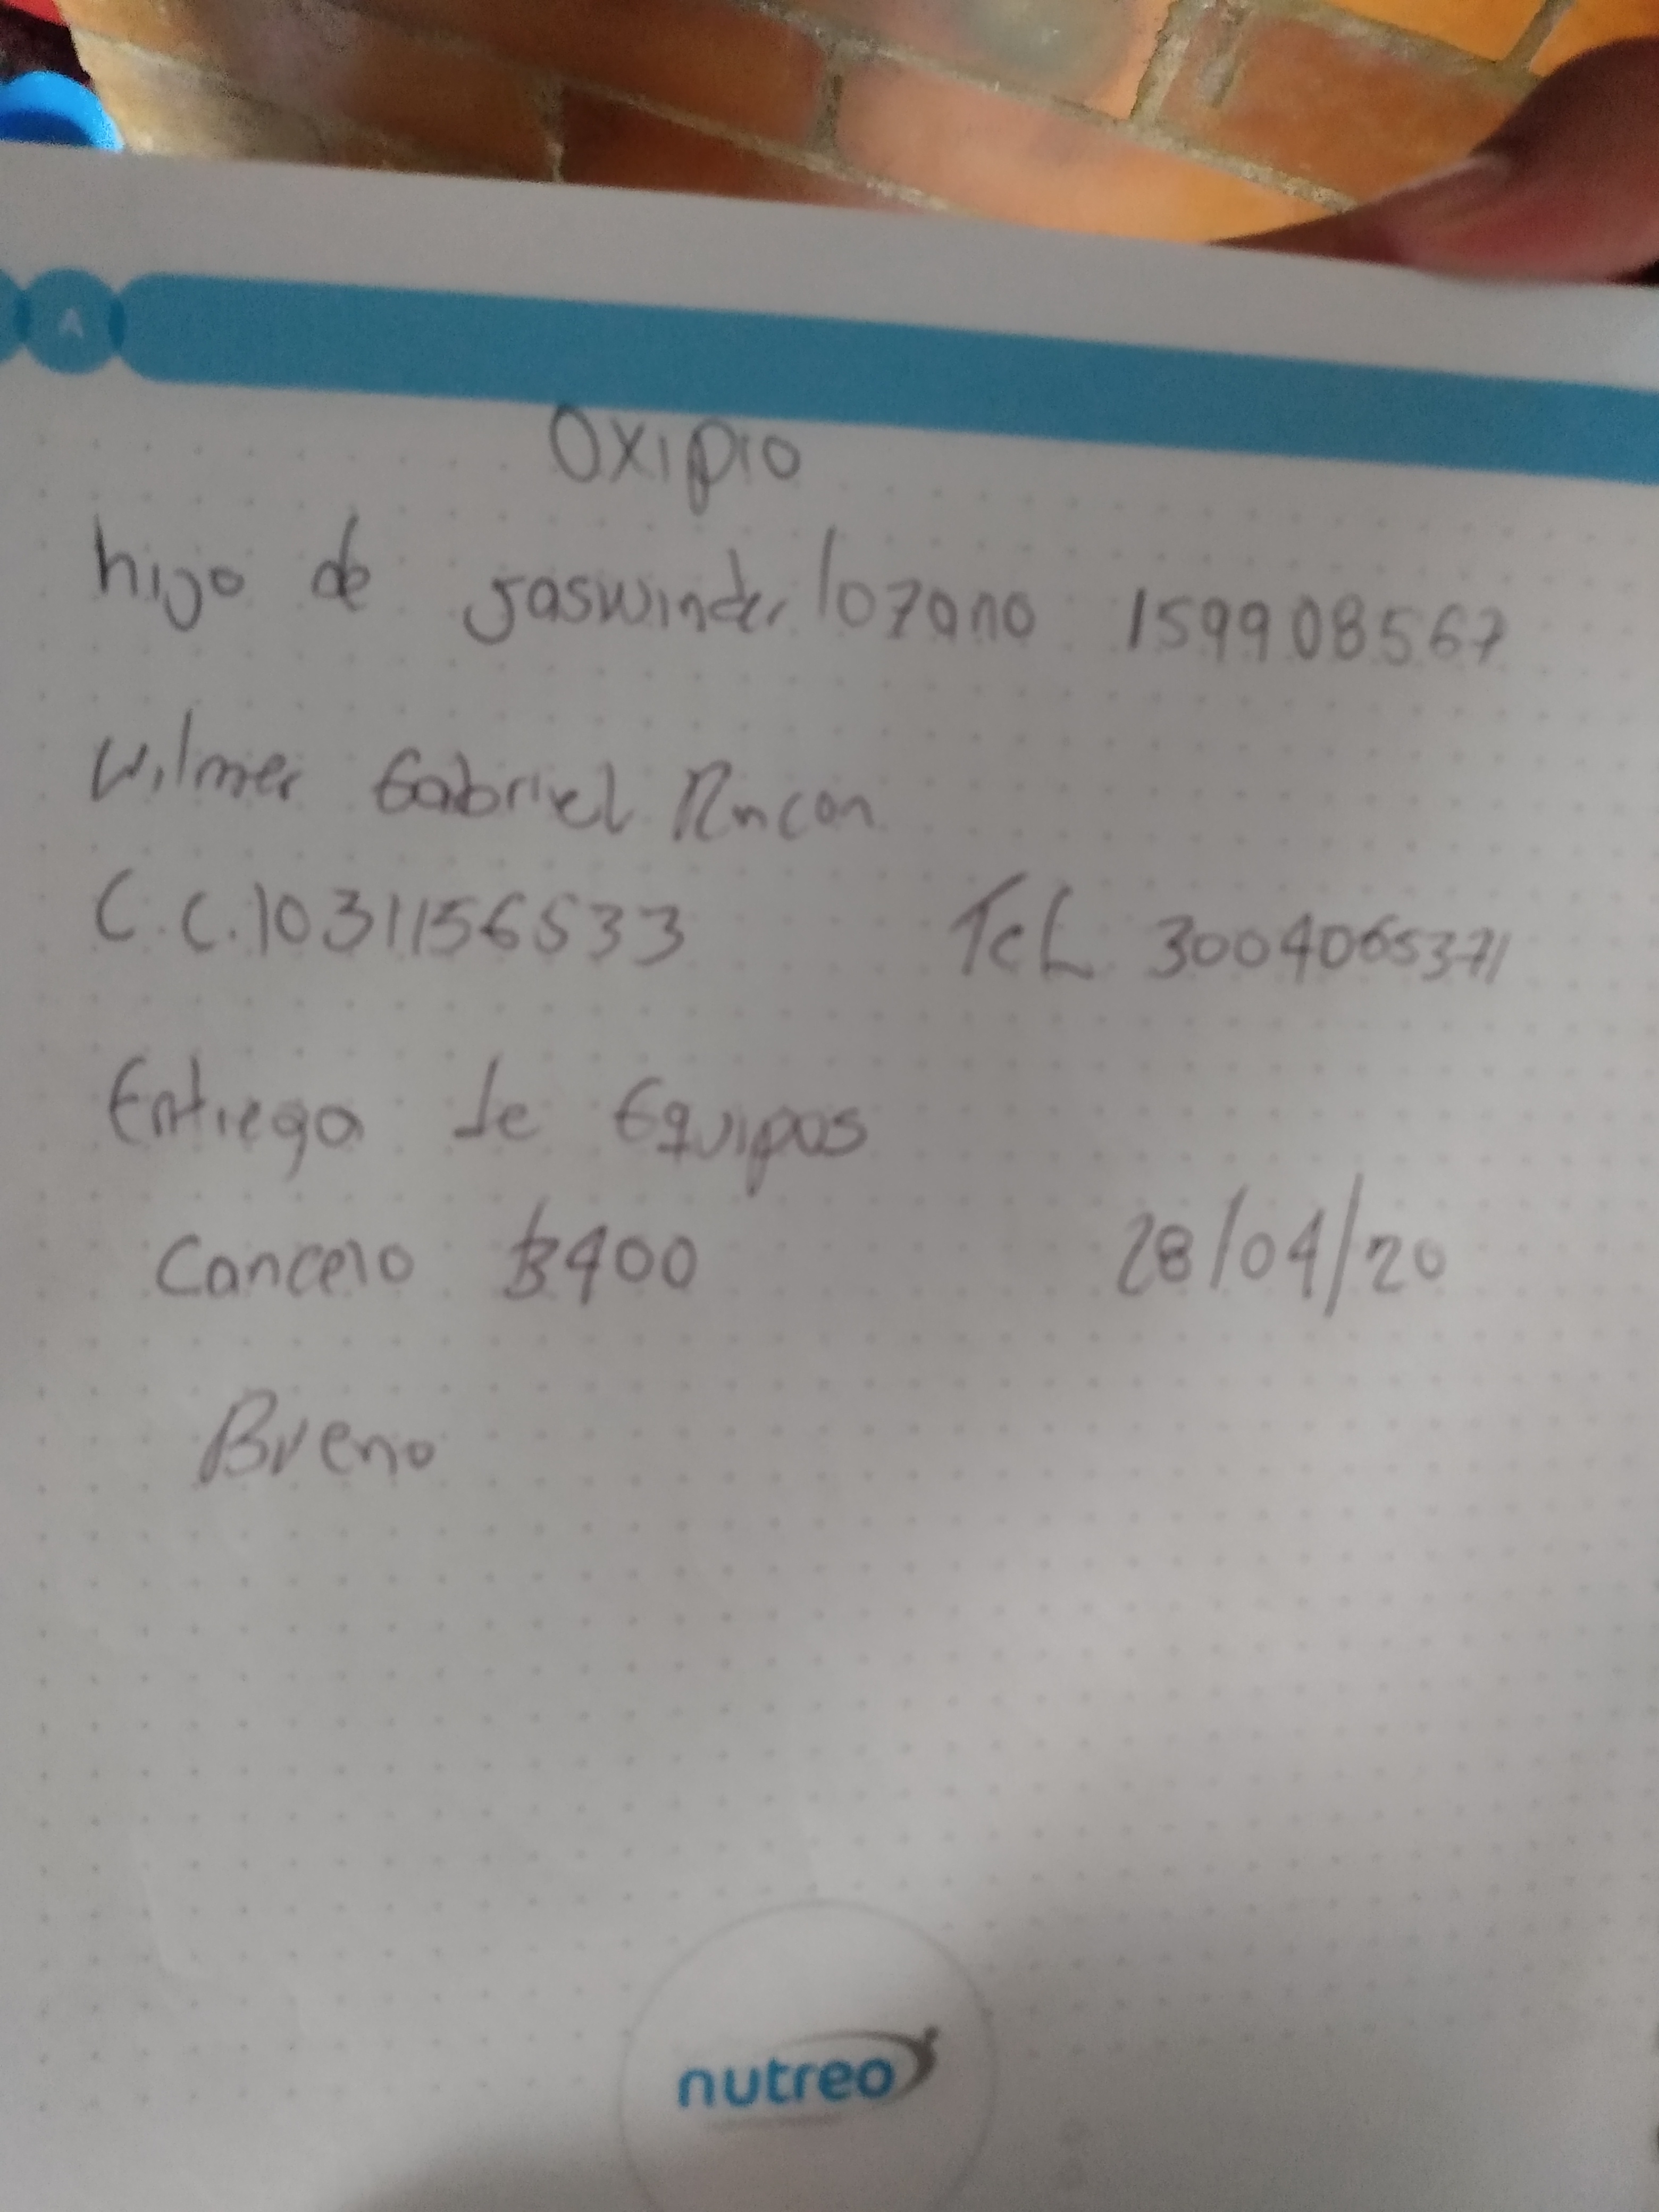 A
OXIPIO
hijo de jaswinder lozano 159908567
Wilmer Gabriel Rincon
C.C.1031156533 Tel 3004065371
Entrega de Equipos
Cancelo $3400 28/04/20
Bueno
nutreo